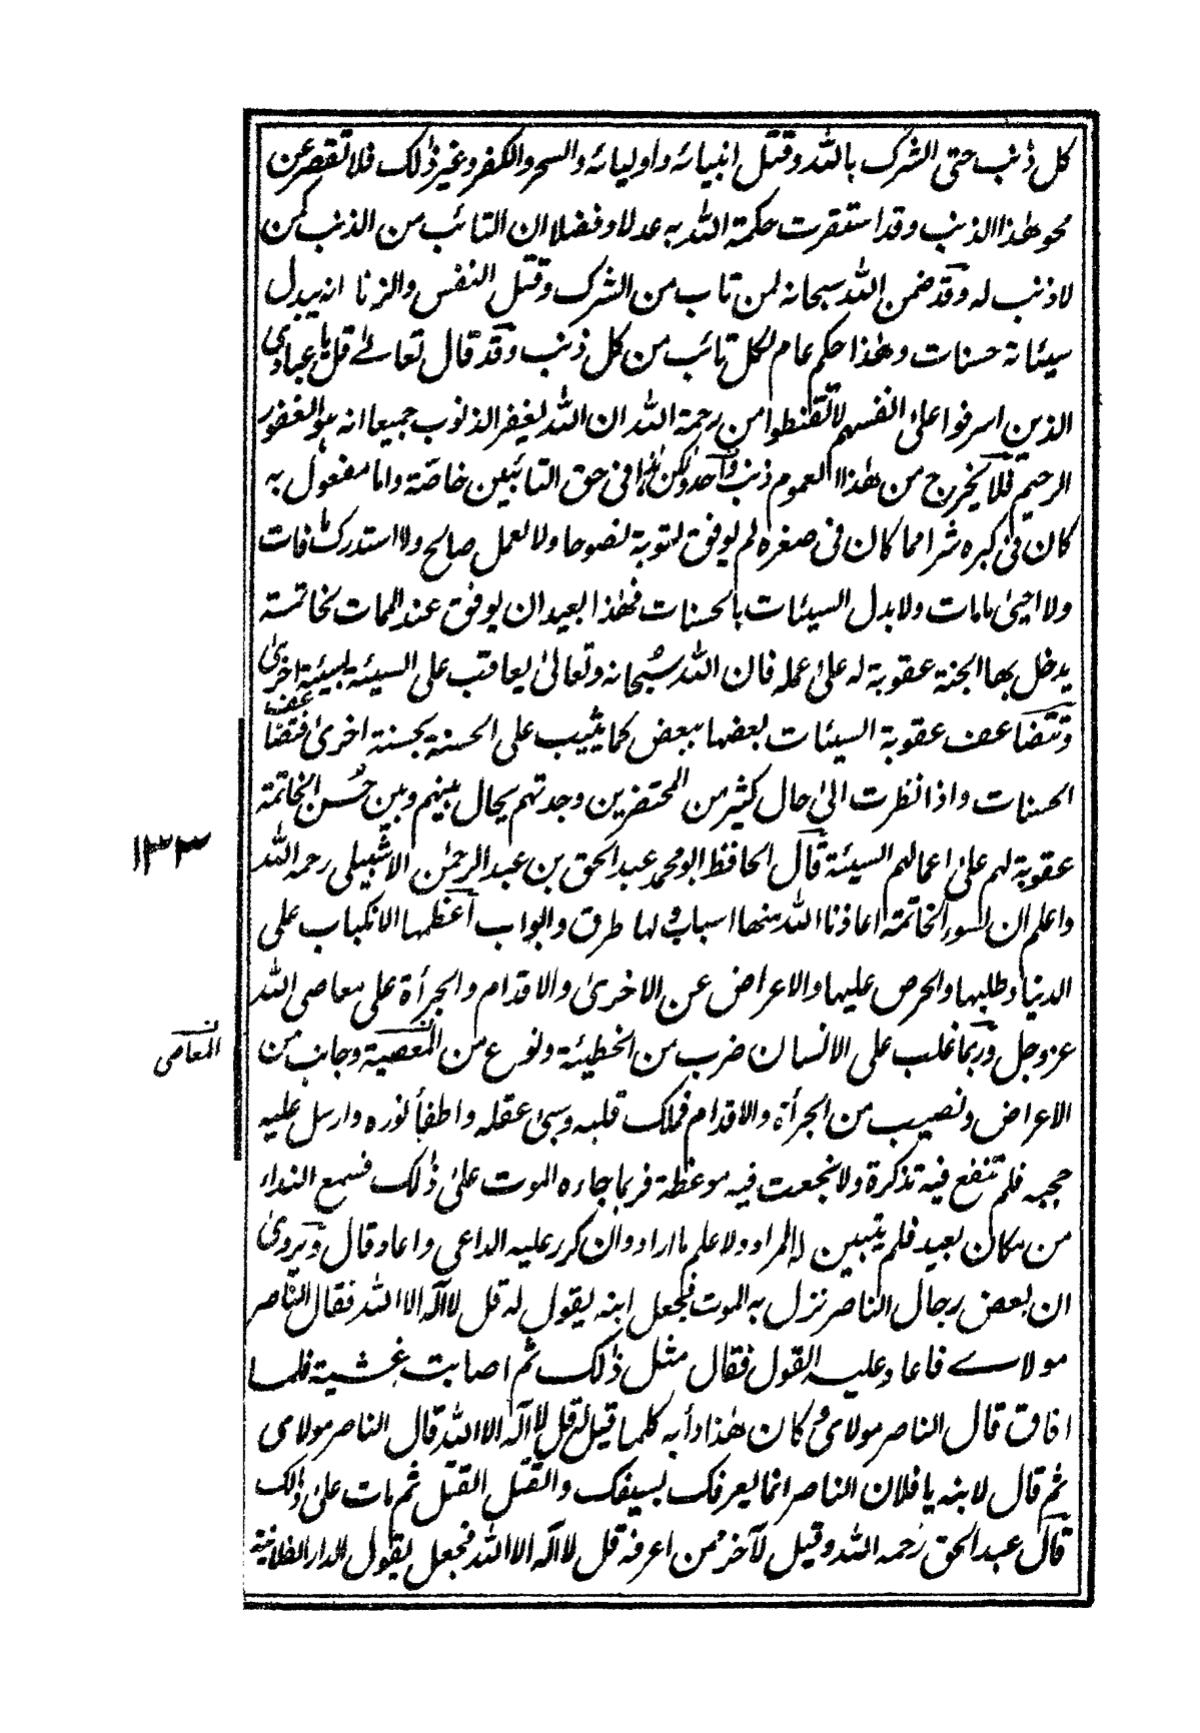 كل ذنب حتى الشرك بالله وقتل انبيائه واوليائه والسحر والكفر وغير ذلك فلا تقصر عن
محو هذا الذنب وقد استقرت حكمة الله به عدلا وفضلا ان التائب من الذنب كمن
لا ذنب له وقد ضمن الله سبحانه لمن تاب من الشرك وقتل النفس والزنا انه يبدل
سيئاته حسنات وهذا حكم عام لكل تائب من كل ذنب وقد قال تعالى قل يا عبادى
الذين اسرفوا على انفسهم لا تقنطوا من رحمة الله ان الله يغفر الذنوب جميعا انه هو الغفور
الرحيم فلا يخرج من هذا العموم ذنب واحد ولكن هذا فى حق التائبين خاصّة واما مفعول به
كان فى كبره شرا مما كان فى صغره لم يوفق لتوبة نصوحا ولا لعمل صالح ولا استدرك ما فات
ولا احيى ما مات ولا بدل السيئات بالحسنات فهذا بعيد ان يوفق عند الممات لخاتمة
يدخل بها الجنة عقوبة له على عمله فان الله سبحانه وتعالى يعاقب على السيئة بسيئة اخرى
وتتضاعف عقوبة السيئات بعضها ببعض كما يثيب على الحسنة بحسنة اخرى فتضاعف
الحسنات واذا نظرت الى حال كثير من المحتضرين وجدتهم يحال بينهم وبين حُسن الخاتمة
عقوبة لهم على اعمالهم السيئة قال الحافظ ابو محمد عبد الحق بن عبد الرحمن الاشبيلى رحمه الله
واعلم ان لسوء الخاتمة اعاذنا الله منها اسباب ولها طرق وابواب اعظمها الانكباب على
الدنيا وطلبها والحرص عليها والاعراض عن الاخرى والاقدام والجرأة على معاصى الله
عز وجل وربما غلب على الانسان ضرب من الخطيئة ونوع من المعصية وجانب من
الاعراض ونصيب من الجرأة والاقدام فملك قلبه وسبى عقله واطفأ نوره وارسل عليه
حجبه فلم تنفع فيه تذكرة ولا نجعت فيه موعظة فربما جاءه الموت على ذلك فسمع النداء
من مكان بعيد فلم يتبين له المراد ولا علم ما اراد وان كرر عليه الداعى واعاد قال ويروى
ان بعض رجال الناصر نزل به الموت فجعل ابنه يقول له قل لا اله الا الله فقال الناصر
مولاى فاعاد عليه القول فقال مثل ذلك ثم اصابت غشية فلما
افاق قال الناصر مولاى وكان هذا دأبه كلما قيل له قل لا اله الا الله قال الناصر مولاى
ثم قال لابنه يا فلان الناصر انما يعرفك بسيفك والقتل القتل ثم مات على ذلك
قال عبد الحق رحمه الله وقيل لآخر ممن اعرفه قل لا اله الا الله فجعل يقول الدار الفلانية
١٣٣
المعاصى